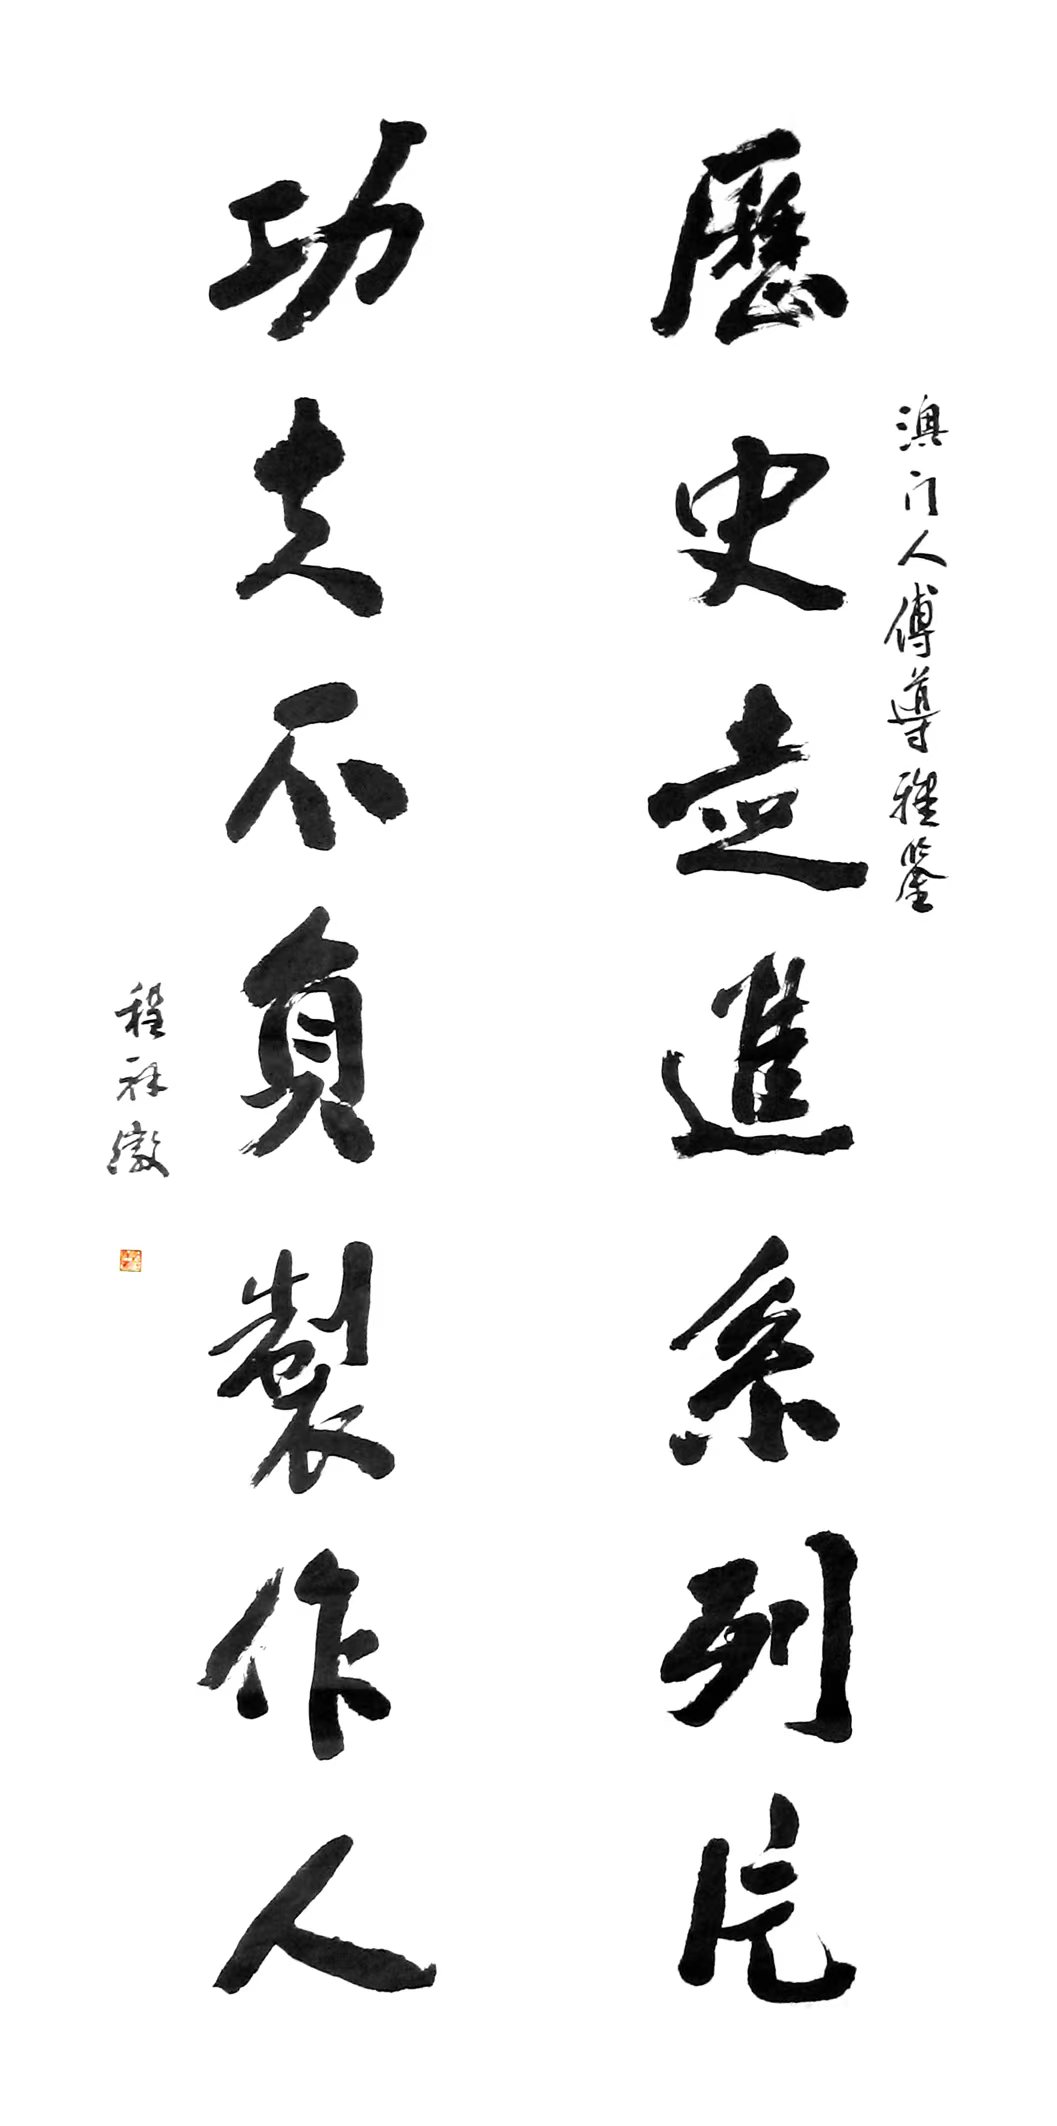 澳门人傅導雅鑒
歷史走進系列片
功夫不負製作人
程祥徽